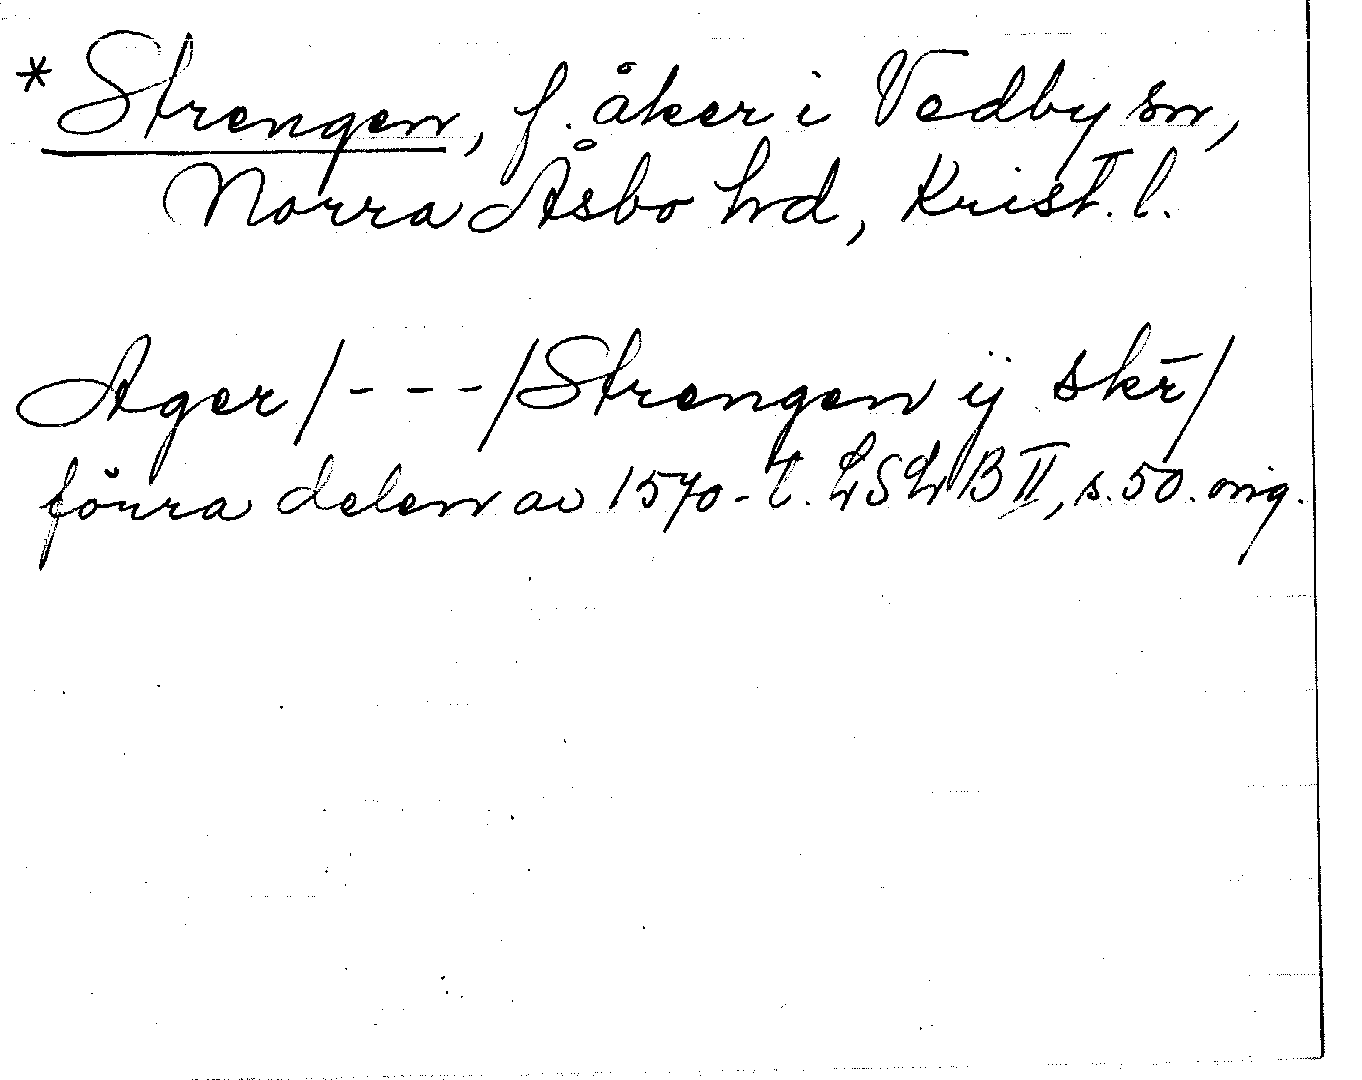 *Strengen, f. åker i Vedby sn,
Norra Åsbo hd, Krist. l.
Ager/---/Strengen ij skr̄/
förra delen av 1570-t. LSLB II, s. 50. orig.